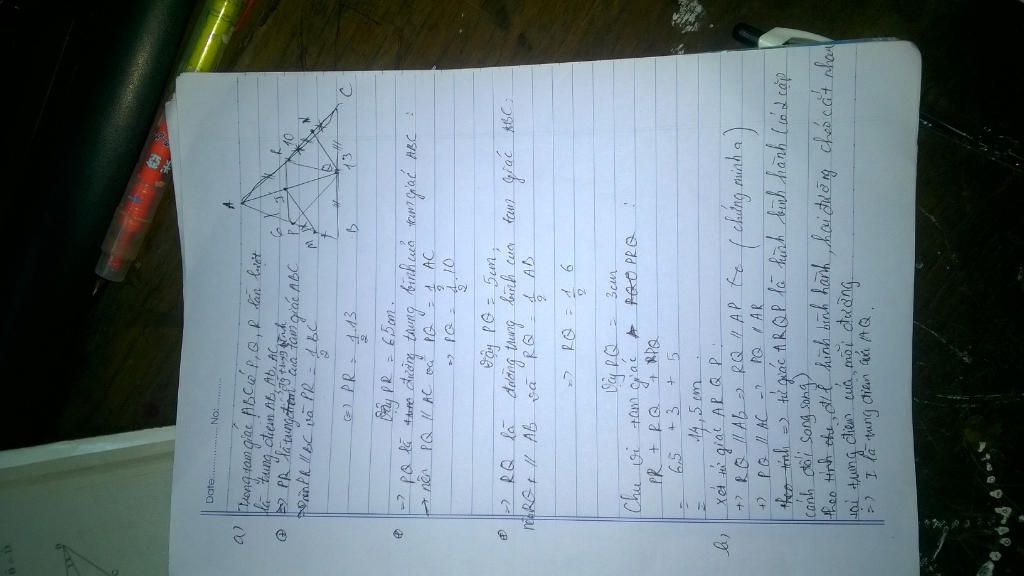 Date: No:
a) Trong tam giác ABC có P, Q, R lần lượt
là trung điểm AB, AB, AC
=> PR là trung bình của tam giác ABC
PR // BC và PR = 1/2 BC
=> PR = 1/2 . 13
Vậy PR = 6,5 m.
=> PQ là đường trung bình của tam giác ABC :
nên PQ // AC và PQ = 1/2 AC
=> PQ = 1/2 . 10
Vậy PQ = 5cm,
=> RQ là đường trung bình của tam giác ABC.
nên RQ // AB và RQ = 1/2 AB
=> RQ = 1/2 6
Vậy RQ = 3cm
Chu vi tam giác PRQ :
PR + RQ + PQ
= 6,5 + 3 + 5
= 14,5 m
b) xét tứ giác AR Q P :
+> RQ // AB => RQ // AP (chứng minh a)
+> PQ // AC => PQ // AR
=> tứ giác ARQP là hình bình hành (có 2 cặp
cạnh đối song song)
theo hình bình hành, hai đường chéo cắt nhau
tại trung điểm của mỗi đường
=> I là trung điểm của AQ.
A
6
3
R
10
P
I
N
M
Q
B
13
C